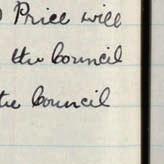 Price will
the Council
the Council